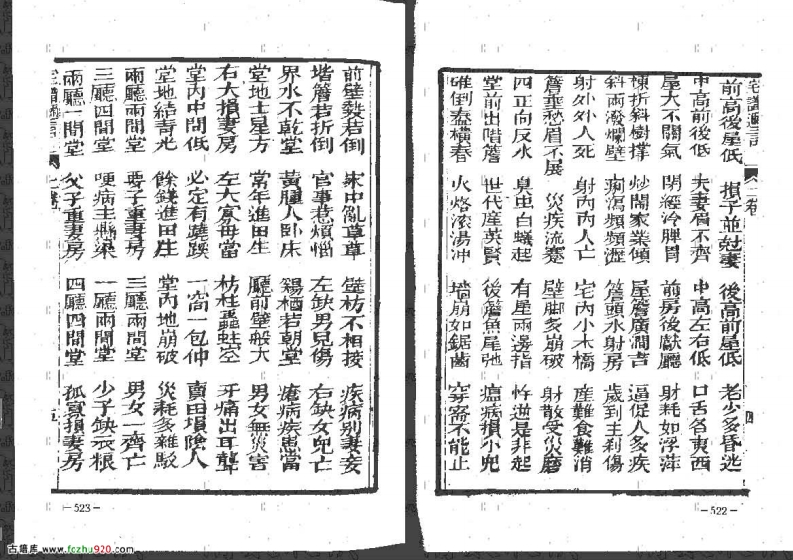 前高後屋低　損子並剋妻　後高前屋低　老少多昏迷
中高前後低　夫妻眉不齊　中高左右低　口舌各東西
屋大不關氣　閉經冷脾胃　前房後獻廳　財耗如浮萍
棟折斜樹撑　炒鬧家業傾　屋簷廣澗吉　逼促人多疾
斜雨潑爛壁　痢瀉頻頻瀝　簷頭水射房　歲到主刹傷
射外外人死　射內內人亡　宅內小木橋　產難食難消
簷垂愁眉不展　災疾流蹇　壁脚多崩破　射散受災磨
四正向反水　臭虫白蟻起　有屋兩邊指　忤逆是非起
堂前出唶簷　世代産英賢　後簷魚尾弛　瘟病損小兒
碓倒壺橫舂　火烙滾湯冲　墻崩如鋸齒　穿窬不能止
四
—522—
前壁毀若倒　家中亂草草　壁枋不相接　疾病別妻妾
堦簷若折倒　官事惹煩惱　左缺男兒傷　右缺女兒亡
界水不乾堂　黃腫人卧床　鷄栖若朝堂　瘡病疾患當
堂地土星方　當年進田庄　廳前壁般大　男女無災害
右大損妻房　左大寡母當　枋柱蟲蛀空　牙痛出耳聾
堂內中間低　必定有蹺蹊　一窩一包仲　賣田塤險人
堂地結青光　餘錢進田庄　堂內地崩破　災耗多雜駁
兩廳兩間堂　妻子重妻房　三廳兩間堂　男女一齊亡
三廳四間堂　哽病主懸梁　一廳兩間堂　少子缺衣根
兩廳一間堂　父子重妻房　四廳四間堂　孤寡損妻房
—523—
古籍库 www.fczhu920.com